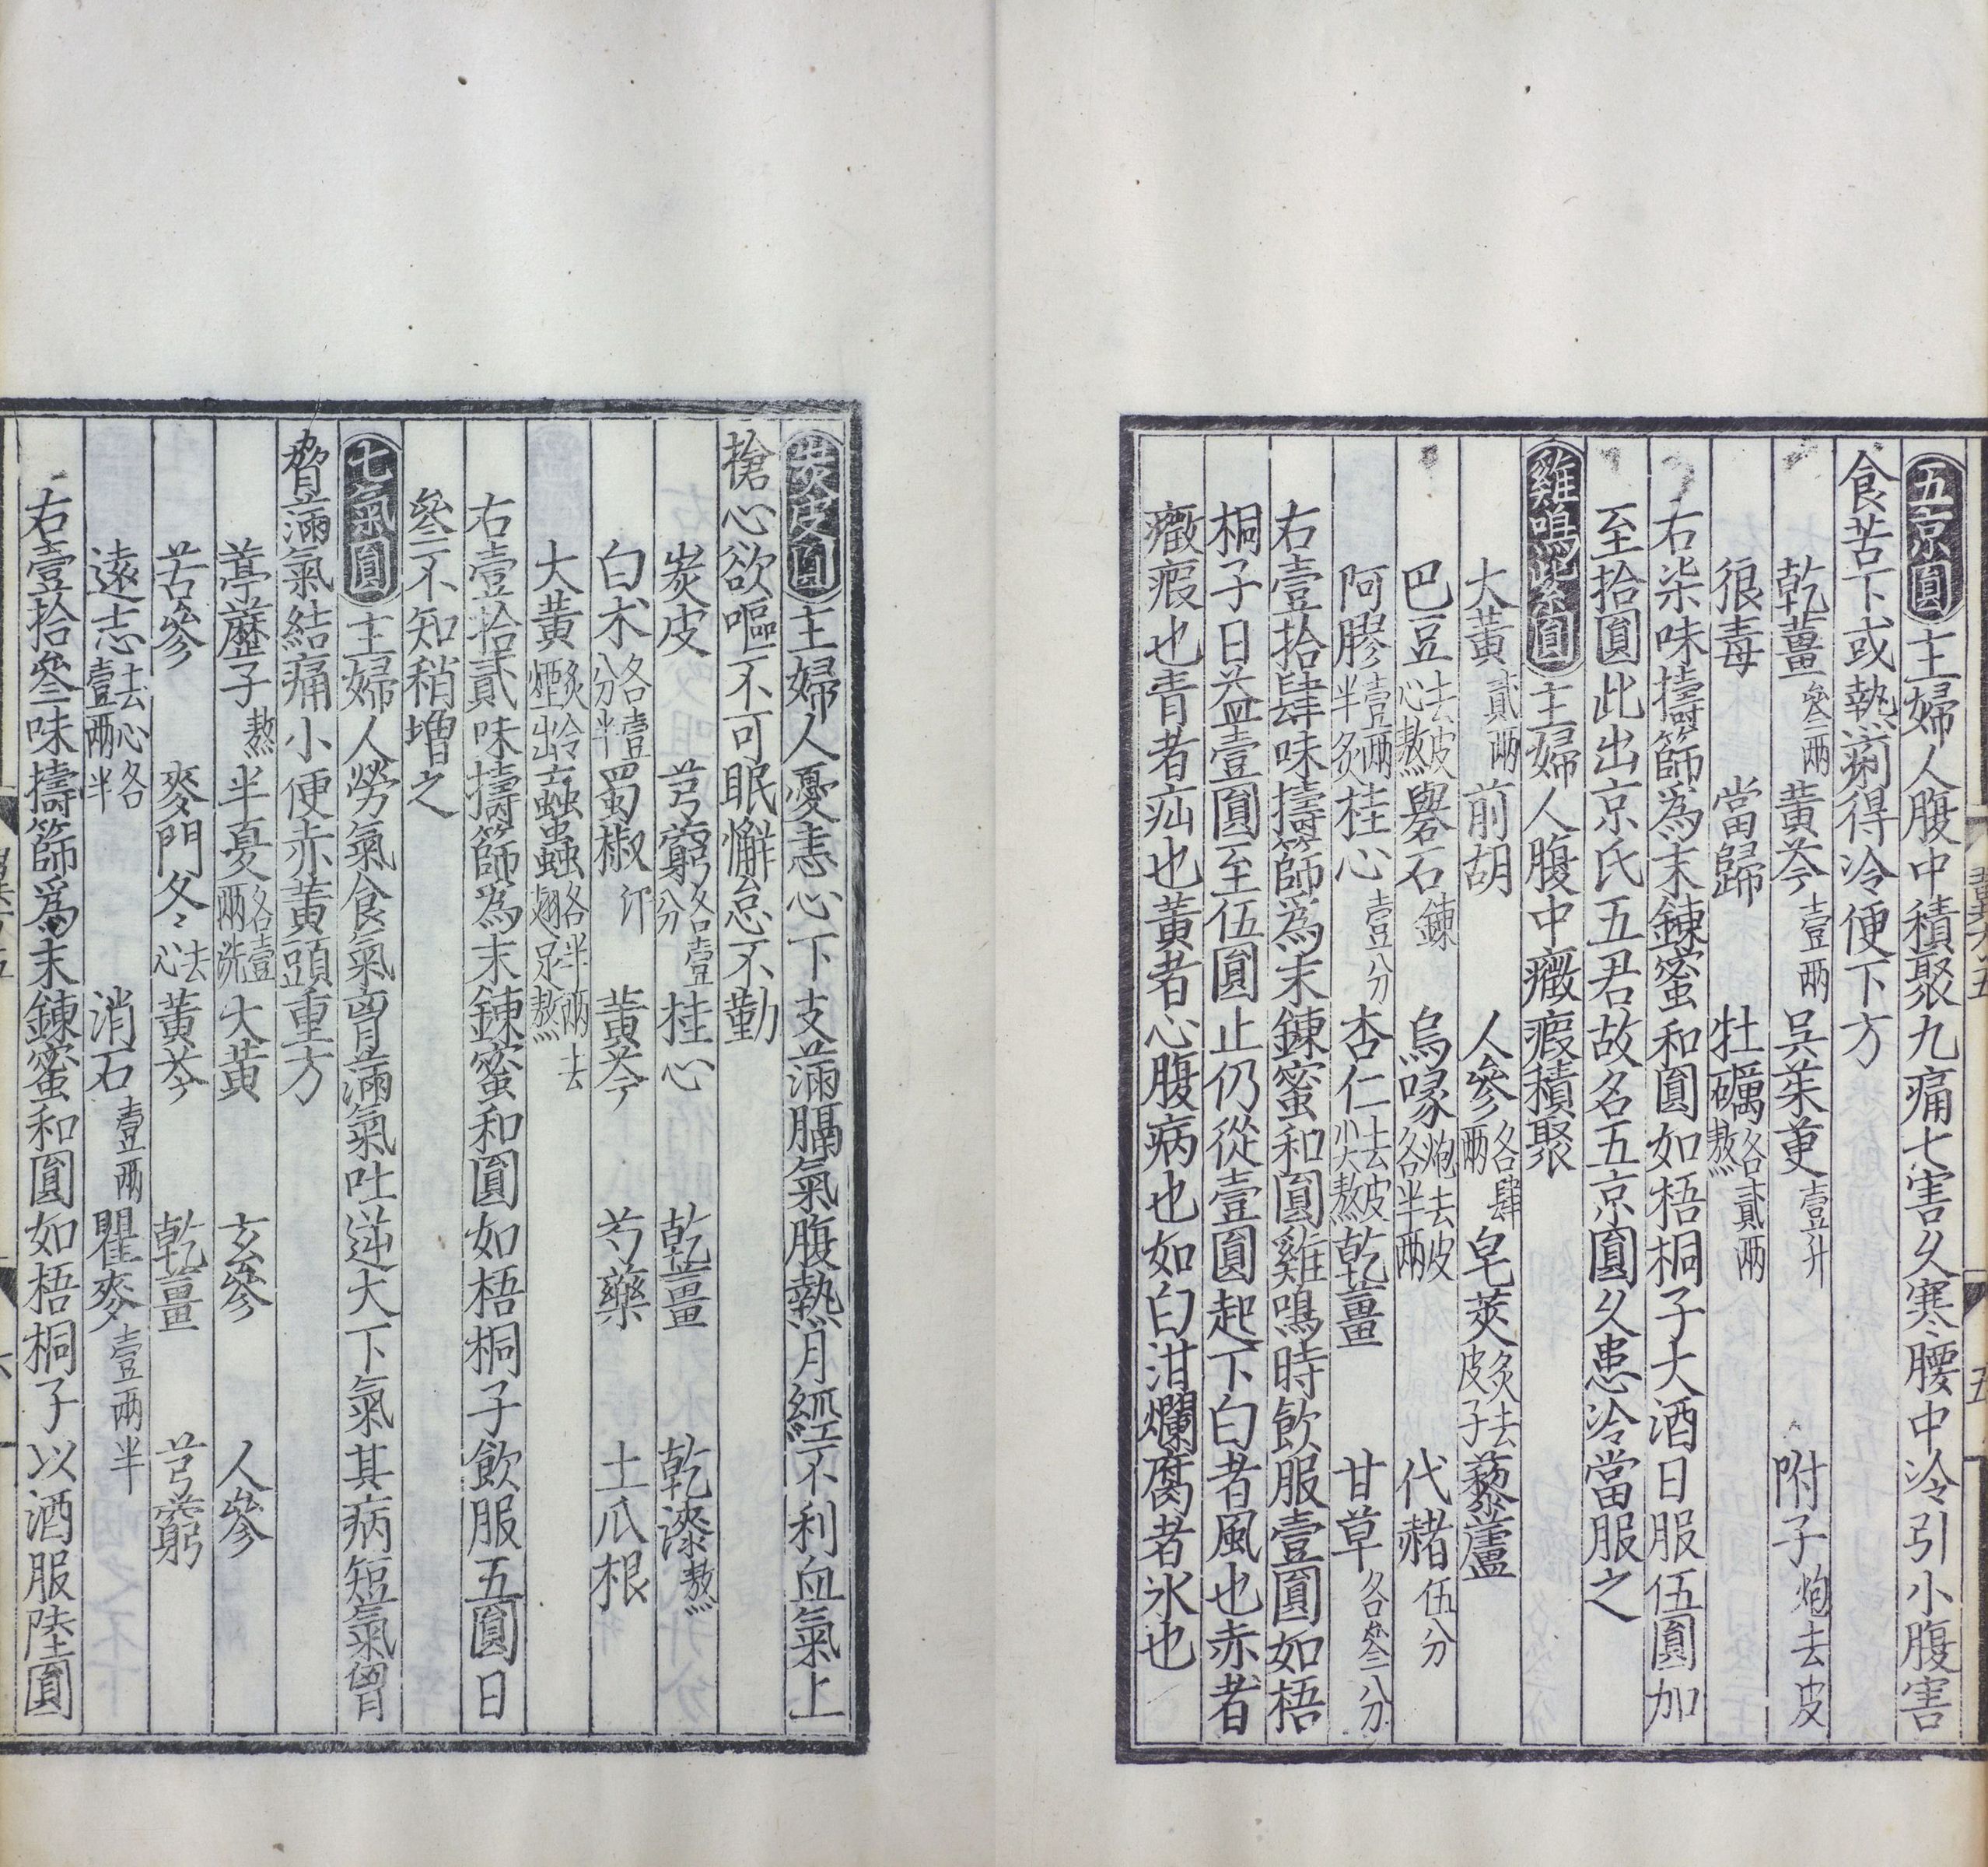 五京圓主婦人腹中積聚九痛七害久寒腰中冷引小腹害
食苦下或熱痢得冷便下方
乾薑叄兩黃芩壹兩吳茱萸壹升附子炮去皮
狼毒當歸牡礪各貳兩熬
右柒味擣篩為末鍊蜜和圓如梧桐子大酒日服伍圓加
至拾圓此出京氏五君故名五京圓久患冷當服之
雞鳴紫圓主婦人腹中癥瘕積聚
大黃貳兩前胡人參各肆兩皂莢炙去皮子藜蘆
巴豆去皮心熬礜石鍊烏喙炮去皮各半兩代赭伍分
阿膠壹兩半炙桂心壹分杏仁去皮尖熬乾薑甘草各叄分
右壹拾肆味擣篩為末鍊蜜和圓雞鳴時飲服壹圓如梧
桐子日益壹圓至伍圓止仍從壹圓起下白者風也赤者
癥瘕也青者疝也黃者心腹病也如白泔爛腐者氷也
炭皮圓主婦人憂恚心下支滿膈氣腹熱月經不利血氣上
搶心欲嘔不可眠懈怠不勤
炭皮芎藭各壹分桂心乾薑乾漆熬
白朮各壹分半蜀椒汗黃芩芍藥土瓜根
大黃炙令煙出䗪蟲各半兩去翅足熬
右壹拾貳味擣篩為末鍊蜜和圓如梧桐子飲服五圓日
叄不知稍增之
七氣圓主婦人勞氣食氣胷滿氣吐逆大下氣其病短氣胷
脅滿氣結痛小便赤黃頭重方
葶藶子熬半夏各壹兩洗大黃玄參人參
苦參麥門冬去心黃芩乾薑芎藭
遠志去心各壹兩半消石壹兩瞿麥壹兩半
右壹拾叄味擣篩爲末鍊蜜和圓如梧桐子以酒服陸圓